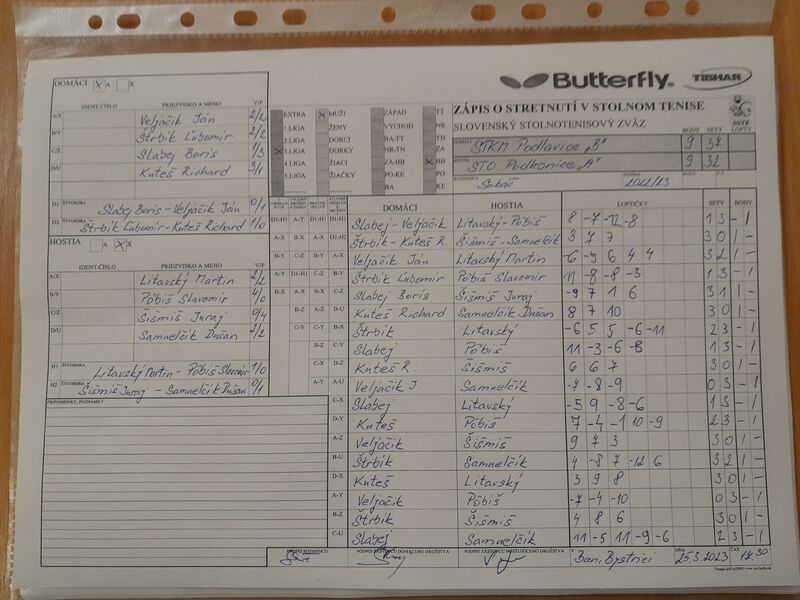 Butterfly TIBHAR
DOMÁCI X A X
ZÁPIS O STRETNUTÍ V STOLNOM TENISE
SLOVENSKÝ STOLNOTENISOVÝ ZVÄZ
IDENT.ČÍSLO PRIEZVISKO A MENO V/P
A/X Veljačik Ján 2/2
B/Y Štrbik Ľubomír 2/2
C/Z Slabej Boris 1/3
D/U Kuteš Richard 3/1
D1 ŠTVORHRA Slabej Boris - Veljačik Ján 0/1
D2 ŠTVORHRA Štrbik Ľubomír - Kuteš Richard 1/0
EXTRA X MUŽI ZÁPAD TT
1.LIGA ŽENY VÝCHOD NR
2.LIGA DORCI BA-TT TN
X 3.LIGA DORKY NR-TN ZA
4.LIGA ŽIACI ZA-BB X BB
5.LIGA ŽIAČKY PO-KE PO
BA KE
BODY SETY LOPTY
DOMÁCI STKM Podlavice „B" 9 37
HOSTIA STO Podkonice „A" 9 32
ROZHODCA Sokáč SEZÓNA 2022/23 KOLO
HOSTIA A X X
IDENT.ČÍSLO PRIEZVISKO A MENO V/P
A/X Litavský Martin 2/2
B/Y Pôbiš Slavomír 4/0
C/Z Šišmiš Juraj 0/4
D/U Samuelčik Dušan 2/2
H1 ŠTVORHRA Litavský Martin - Pôbiš Slavomír 1/0
H2 ŠTVORHRA Šišmiš Juraj - Samuelčik Dušan 0/1
PRIPOMIENKY, POZNÁMKY
DOMÁCI HOSTIA LOPTIČKY SETY BODY
D1-H1 Slabej - Veljačik Litavský - Pôbiš 8 -7 -12 -8 1 3 - 1
D2-H2 Štrbik - Kuteš R. Šišmiš - Samuelčik 3 7 7 3 0 1 -
B-Y Veljačik Ján Litavský Martin -6 -9 6 4 4 3 2 1 -
B-Y Štrbik Ľubomír Pôbiš Slavomír 11 -8 -8 -3 1 3 - 1
C-Z Slabej Boris Šišmiš Juraj -9 7 1 6 3 1 1 -
D-U Kuteš Richard Samuelčik Dušan 8 7 10 3 0 1 -
B-X Štrbik Litavský -6 5 5 -6 -11 2 3 - 1
C-Y Slabej Pôbiš 11 -3 -6 -8 1 3 - 1
D-Z Kuteš R. Šišmiš 6 6 7 3 0 1 -
A-U Veljačik J. Samuelčik -7 -8 -9 0 3 - 1
C-X Slabej Litavský -5 9 -8 -6 1 3 - 1
D-Y Kuteš Pôbiš 7 -4 -1 10 -9 2 3 - 1
A-Z Veljačik Šišmiš 9 7 3 3 0 1 -
B-U Štrbik Samuelčik 4 -8 7 -12 6 3 2 1 -
D-X Kuteš Litavský 3 9 8 3 0 1 -
A-Y Veljačik Pôbiš -7 -4 -10 0 3 - 1
B-Z Štrbik Šišmiš 4 8 6 3 0 1 -
C-U Slabej Samuelčik 11 -5 11 -9 -6 2 3 - 1
PODPIS ROZHODCU PODPIS ZÁSTUPCU DOMÁCEHO DRUŽSTVA PODPIS ZÁSTUPCU HOSŤUJÚCEHO DRUŽSTVA V Ban. Bystrici DŇA 25.3.2023 ČAS 17 30